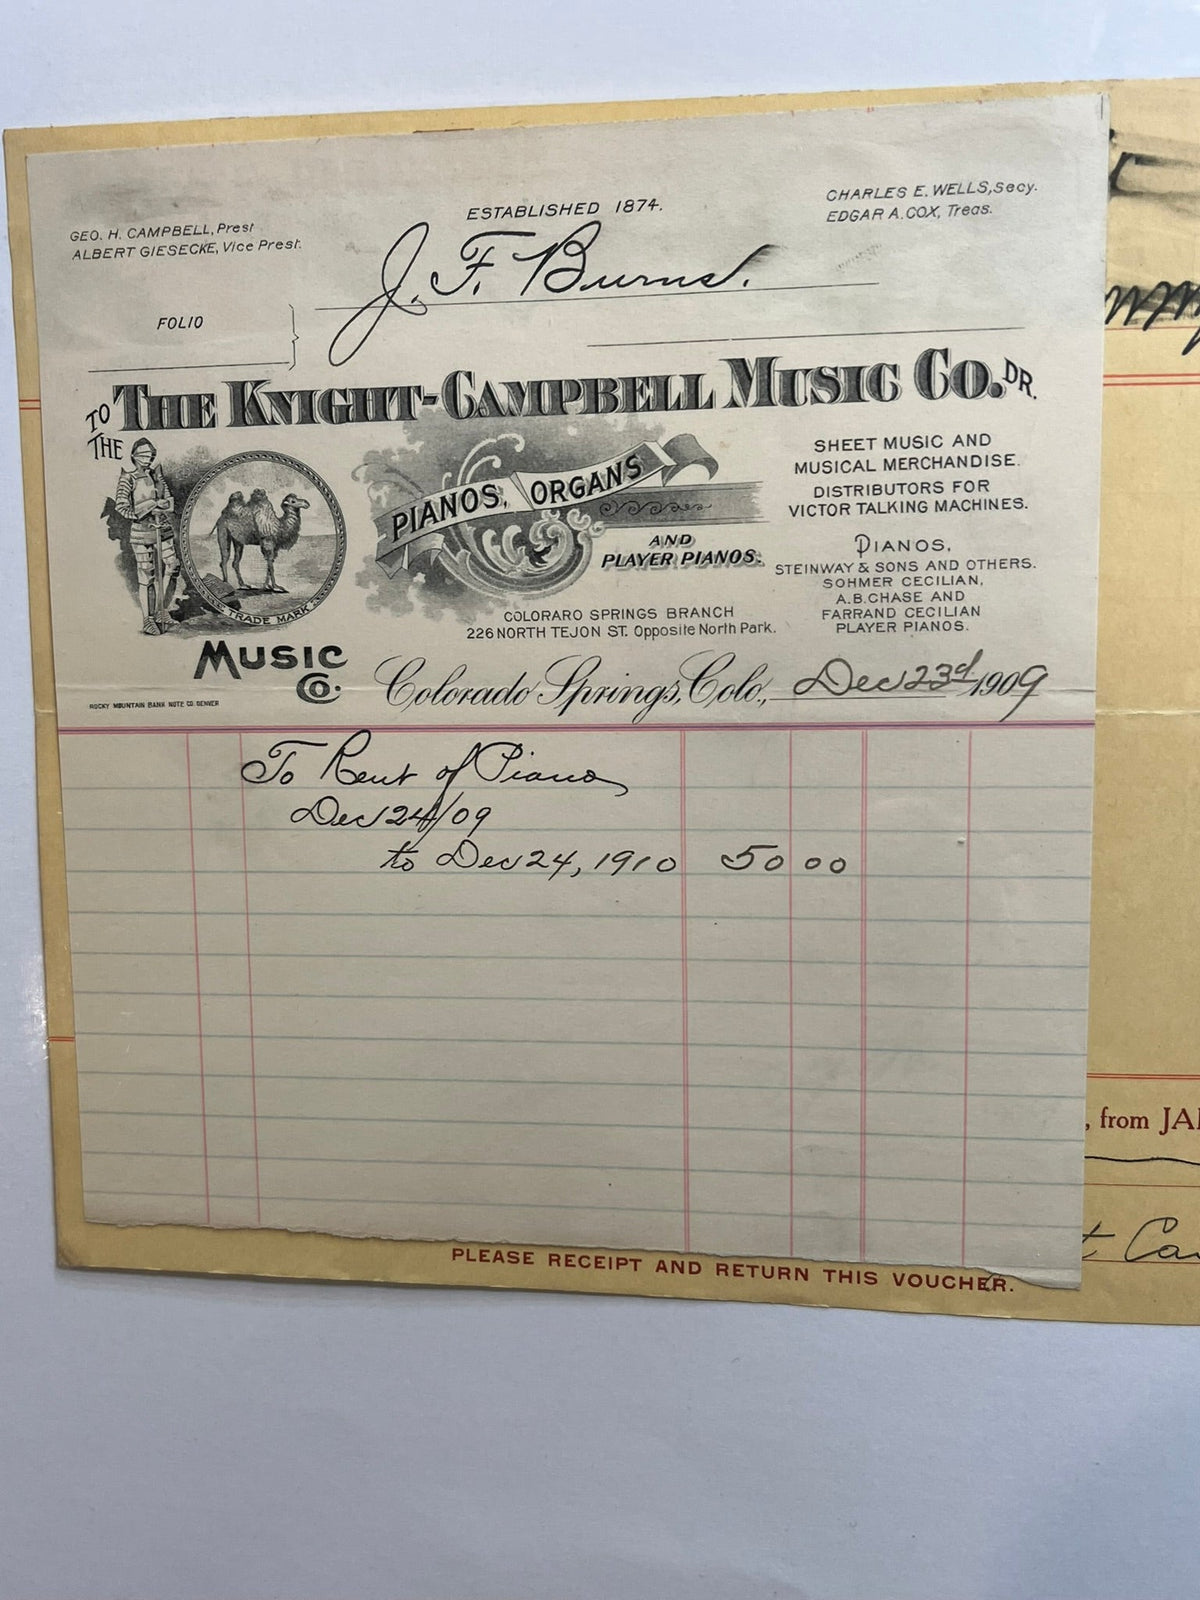 ESTABLISHED 1874.
GEO. H. CAMPBELL, Prest
ALBERT GIESECKE, Vice Prest.
CHARLES E. WELLS, Secy.
EDGAR A. COX, Treas.
J. F. Burns.
FOLIO
TO THE KNIGHT-CAMPBELL MUSIC CO. DR.
THE
TRADE MARK
MUSIC
CO.
PIANOS, ORGANS
AND
PLAYER PIANOS.
COLORARO SPRINGS BRANCH
226 NORTH TEJON ST. Opposite North Park.
SHEET MUSIC AND
MUSICAL MERCHANDISE.
DISTRIBUTORS FOR
VICTOR TALKING MACHINES.
PIANOS,
STEINWAY & SONS AND OTHERS.
SOHMER CECILIAN,
A.B. CHASE AND
FARRAND CECILIAN
PLAYER PIANOS.
ROCKY MOUNTAIN BANK NOTE CO. DENVER
Colorado Springs, Colo., Dec 23d 1909
To Rent of Piano
Dec 24/09
to Dec 24, 1910 50 00
, from JA
PLEASE RECEIPT AND RETURN THIS VOUCHER.